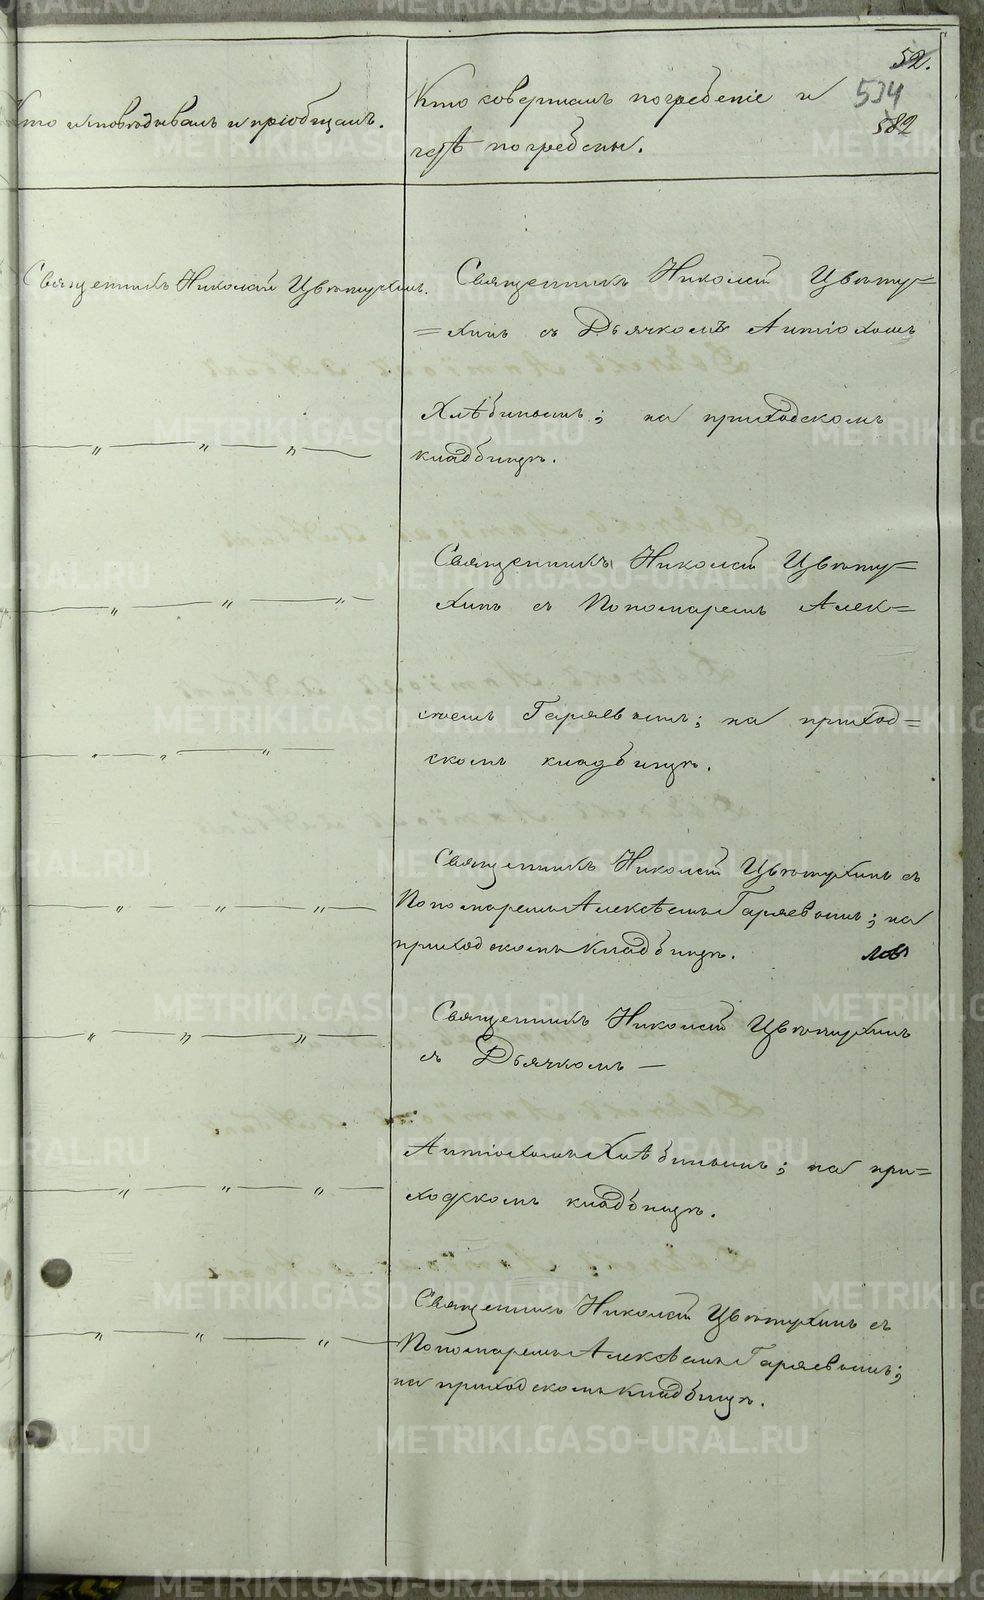 52.
534
582
Кто исповѣдывалъ и пріобщалъ.
Кто совершалъ погребеніе и
гдѣ погребены.
Священникъ Николай Цвѣтухинъ.
Священникъ Николай Цвѣту=
=хинъ съ Дьячкомъ Антіохомъ
Хлѣбинымъ; на приходскомъ
кладбищѣ.
— „ — „ — „ —
Священникъ Николай Цвѣту=
хинъ съ Пономаремъ Алек=
— „ — „ — „ —
сѣемъ Гаряевымъ; на приход=
скомъ кладбищѣ.
— „ — „ — „ —
Священникъ Николай Цвѣтухинъ съ
Пономаремъ Алексѣемъ Гаряевымъ; на
приходскомъ кладбищѣ.
— „ — „ — „ —
Священникъ Николай Цвѣтухинъ
съ Дьячкомъ —
— „ — „ — „ —
Антіохомъ Хлѣбинымъ; на при=
ходскомъ кладбищѣ.
— „ — „ — „ —
Священникъ Николай Цвѣтухинъ съ
Пономаремъ Алексѣемъ Гаряевымъ;
на приходскомъ кладбищѣ.
— „ — „ — „ —
METRIKI.GASO-URAL.RU